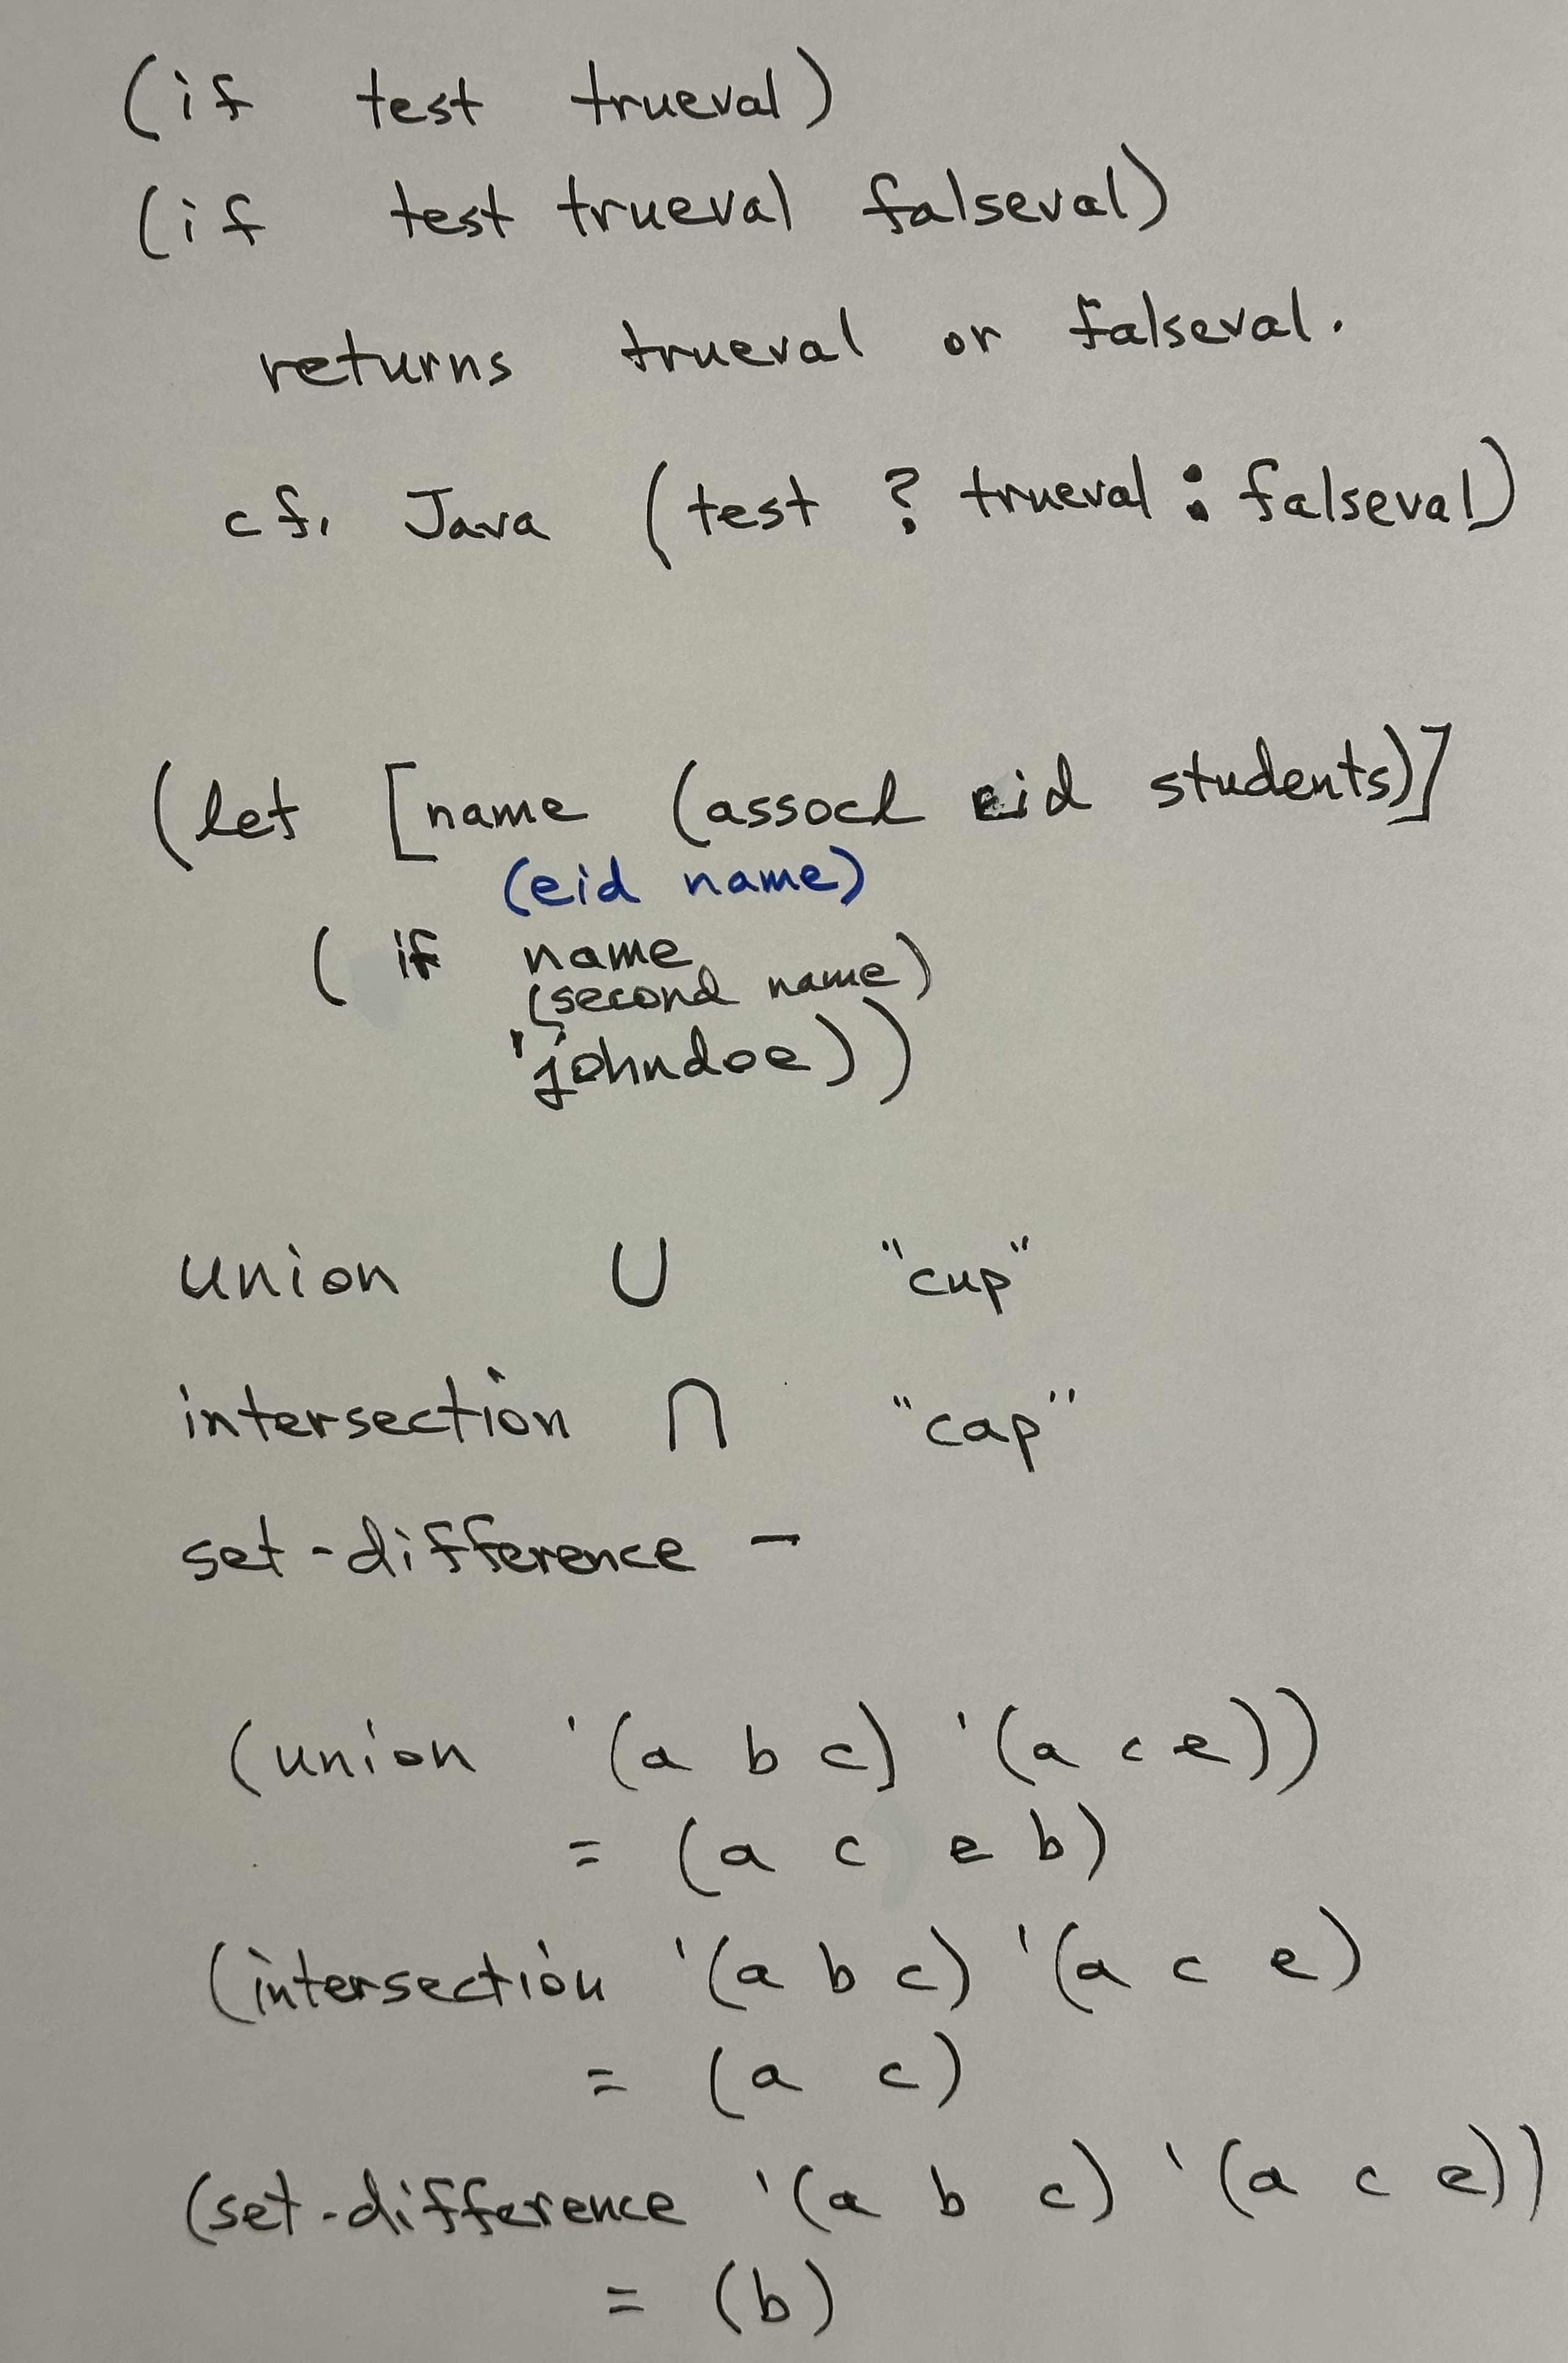 (if test trueval)
(if test trueval falseval)
returns trueval or falseval.
cf. Java (test ? trueval : falseval)
(let [name (assocl eid students)]
(eid name)
(if name
(second name)
'johndoe))
union ∪ "cup"
intersection ∩ "cap"
set-difference -
(union '(a b c) '(a c e))
= (a c e b)
(intersection '(a b c) '(a c e)
= (a c)
(set-difference '(a b c) '(a c e))
= (b)